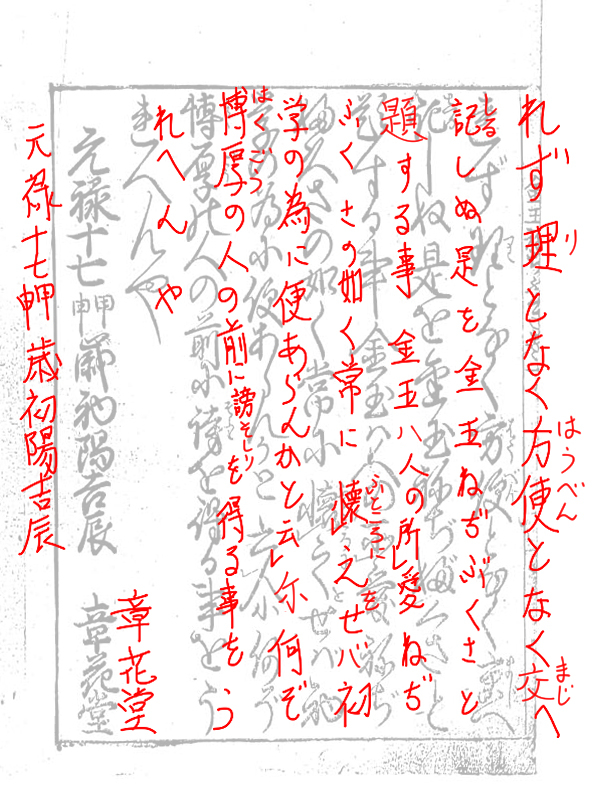 れず理となく方便となく交へ
記しぬ是を金玉ねぢぶくさと
題する事金玉ハ人の所愛ねぢ
ぶくさの如く常に懐えせバ初
学の為に便あらんかと云尓何ぞ
博厚の人の前に謗を得る事をう
れへんや
元禄十七甲申歳初陽吉辰
章花堂